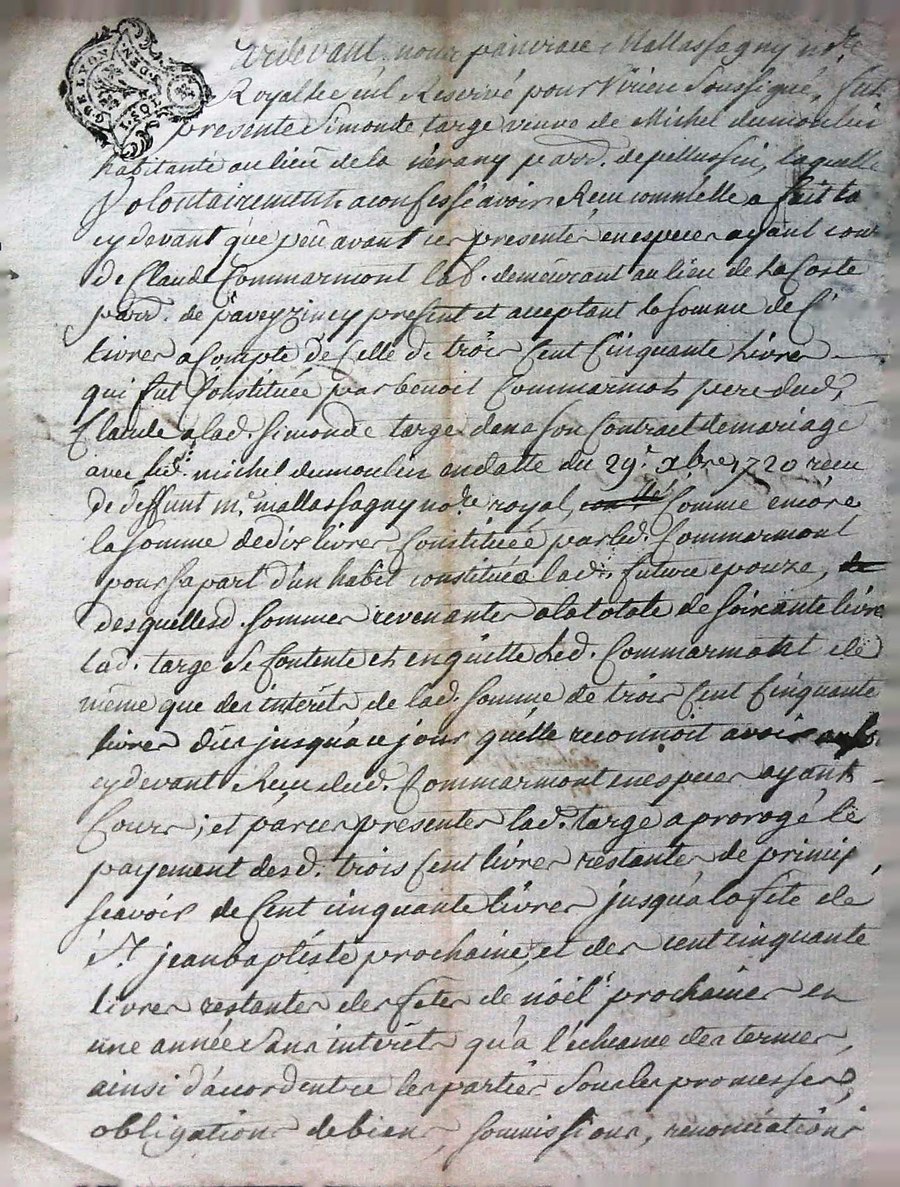 G. DE LYON
Pardevant nous pancrace Mallassagny no.re
Royal reservé pour Virieu soussigné, fut
presente Simonde targe veuve de Michel dumoulin
habitante au lieu de la parr. de pellussin, laquelle
volontairement a confessé avoir Receu comme elle a fait
cy devant que peu avant ces presentes en especes ayant cour
de Claude Commarmont lab. demeurant au lieu de La Coste
parr. de paveyzincy present et acceptant la somme de
livres a Compte de Celle de trois Cent Cinquante Livres
qui fut Constituée par benoit Commarmont pere dud.
Claude a lad. Simonde targe dans son Contract de mariage
avec led. michel dumoulin en datte du 29.e xbre 1720 receu
de deffunt m.e mallassagny no.re royal, Comme encore
la somme de dix livres Constituée par led. Commarmont
pour sa part d'un habit constitué a lad. future epouze,
desquelles d. sommes revenantes a la totale de soixante livre
Lad. targe se Contente et en quitte Led. Commarmont de
même que des interéts de lad. somme de trois Cent Cinquante
livres dus jusqu'a ce jour qu'elle reconnoit avoir
cy devant Receu dud. Commarmont en especes ayant
Cours ; et par ces presentes lad. targe a prorogé le
payement desd. trois Cent livres restantes de princip.
scavoir de Cent cinquante livres jusqu'a la fete de
S.t jean baptiste prochaine, et des cent cinquante
livres restantes des fetes de nöel prochaines en
une année sans interét qu'a l'echeance des termes,
ainsi d'acord entre les parties sous les promesses,
obligations de biens, soumissions, renonciations